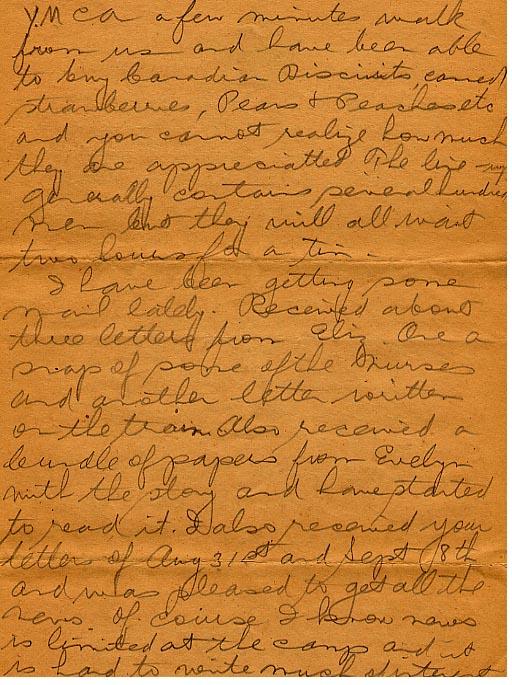 YMCA a few minutes walk
from us and have been able
to buy Canadian Biscuits, canned
strawberries, Pears & Peaches etc
and you cannot realize how much
they are appreciatted The line up
generally contains several hundred
men but they will all wait
two hours for a tin.
I have been getting some
mail lately. Received about
three letters from Eliz. One a
snap of some of the Nurses
and another letter written
on the train. Also received a
bundle of papers from Evelyn
with the story and have started
to read it. I also received your
letters of Aug 31st and Sept 8th
and was pleased to get all the
news of course I know news
is limited at the camp and it
is hard to write much of interest